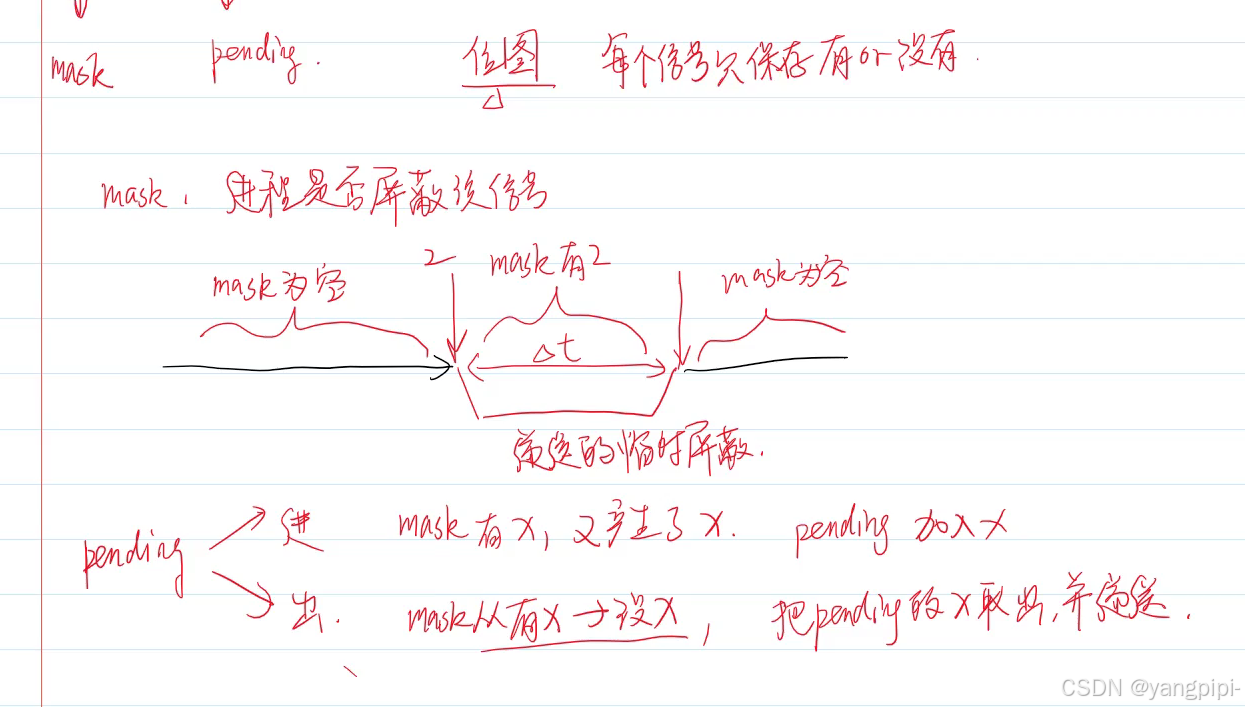 mask pending. 位图 每个信号只保存有or没有.
mask. 进程是否屏蔽该信号
mask为空 2 mask有2 mask为空
Δt
递送的临时屏蔽.
pending 进 mask有x, 又产生了x. pending 加入x
出. mask从有x→没x, 把pending的x取出,并递送.
CSDN @yangpipi-